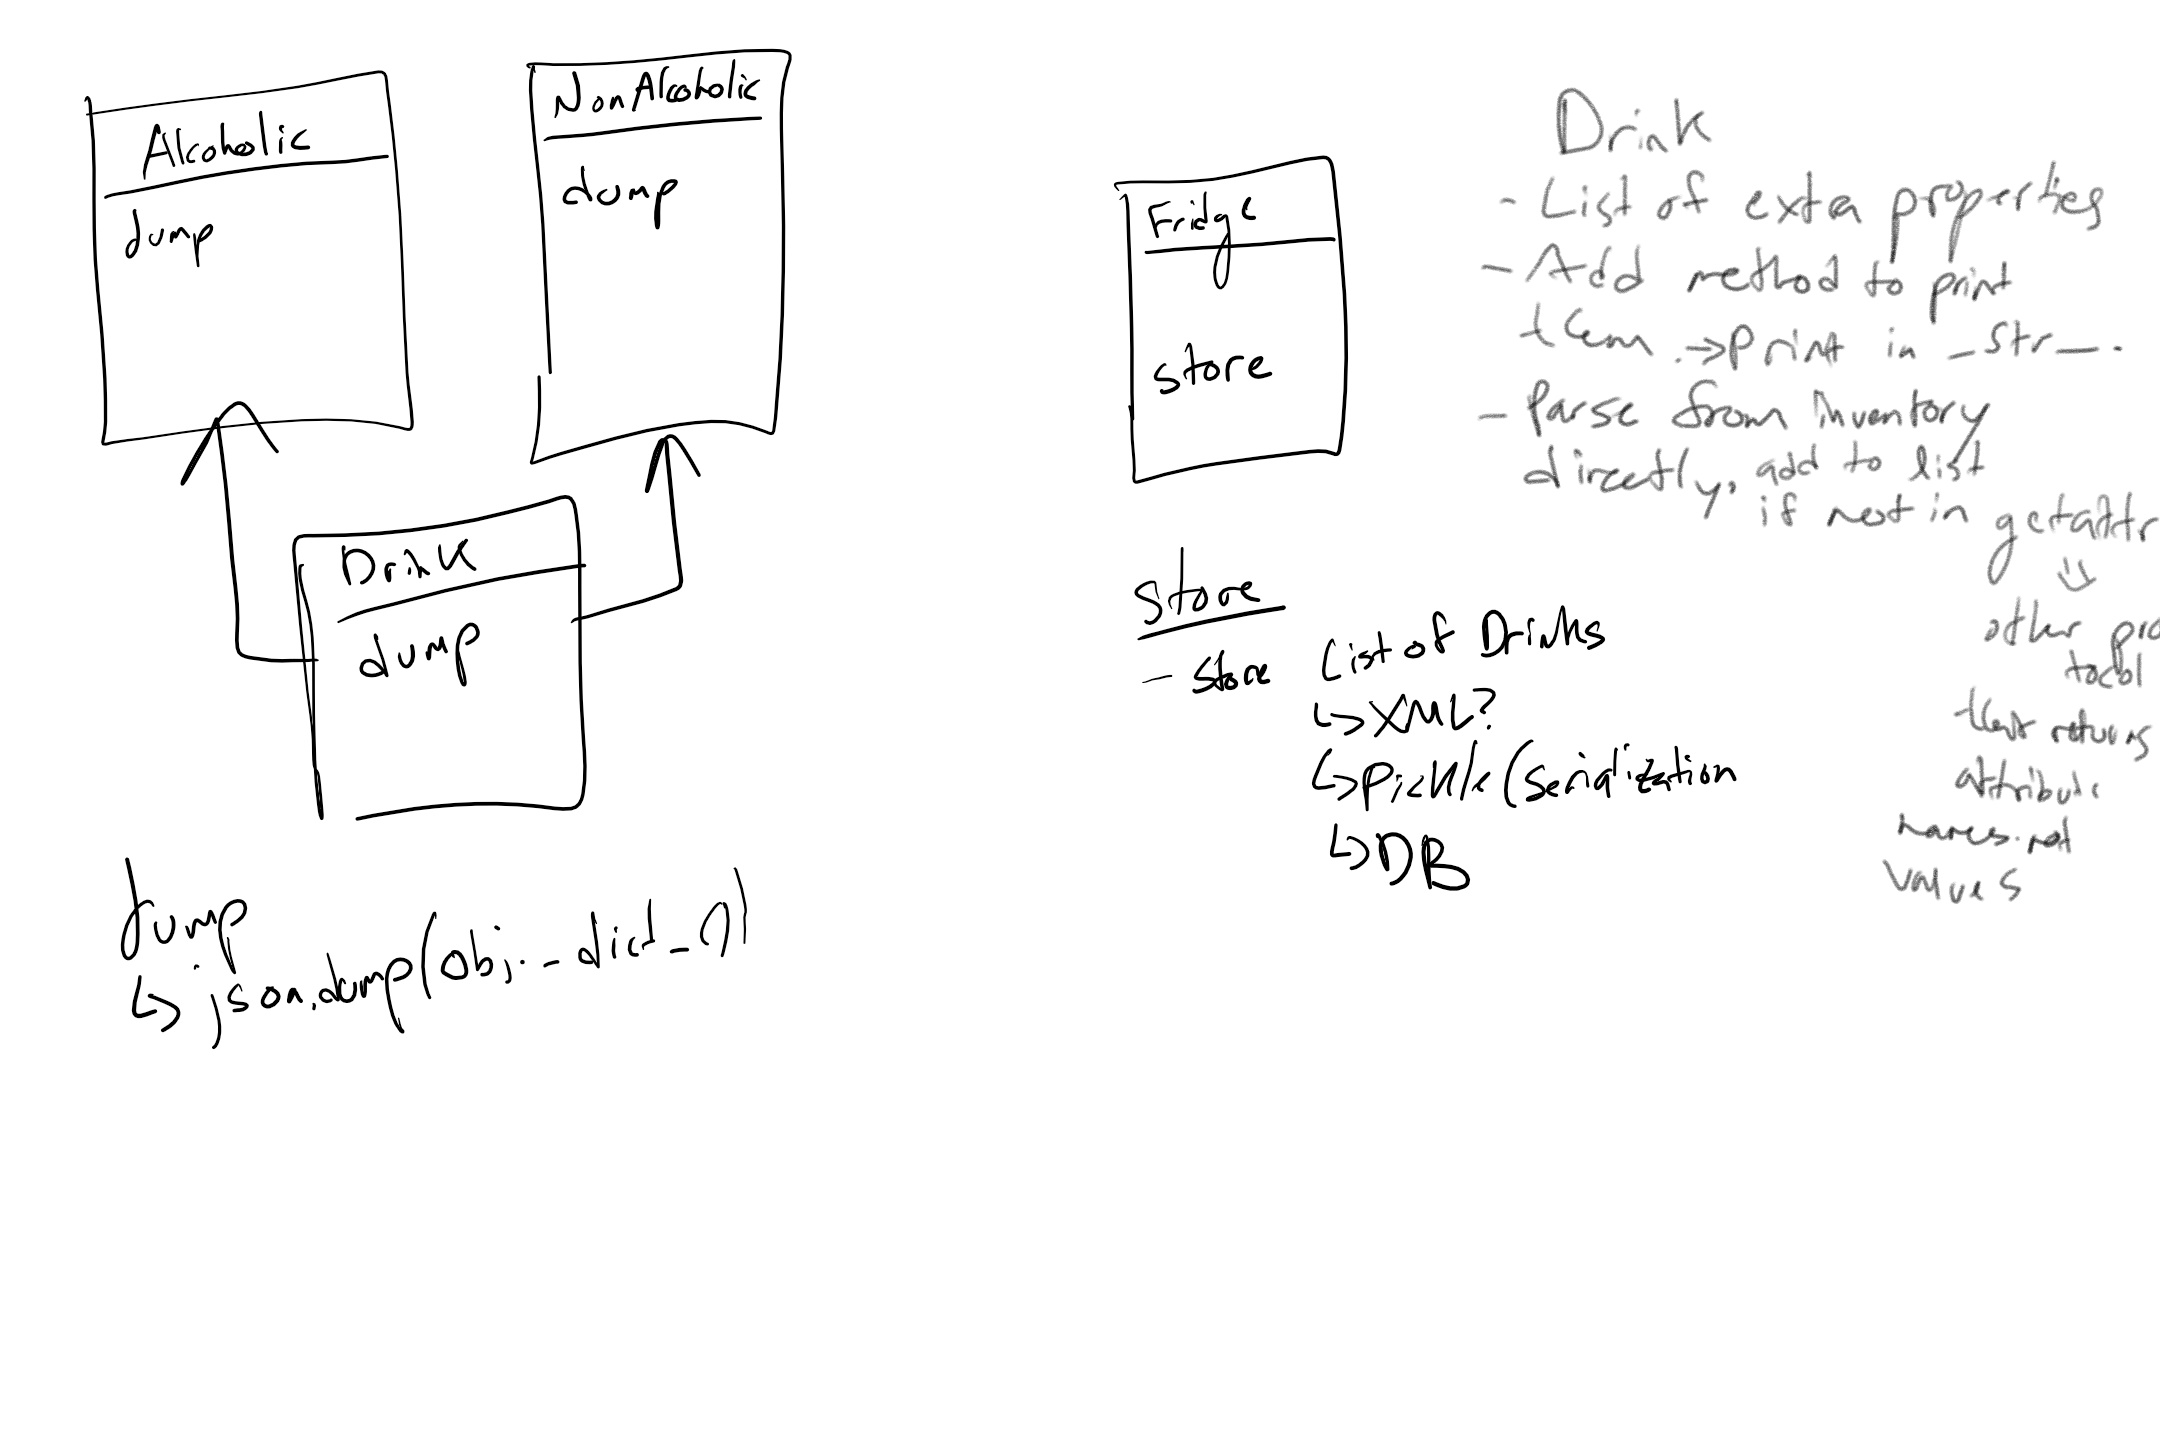 Alcoholic
dump
NonAlcoholic
dump
Drink
dump
dump
↳ json.dump(obj.__dict__())
Fridge
store
store
- store List of Drinks
↳ XML?
↳ Pickle (serialization
↳ DB
Drink
- List of extra properties
- Add method to print
them. → Print in _str__.
- Parse from inventory
directly, add to list
if not in getattr
⇓
other pro
tocol
that returns
attribute
names. not
values